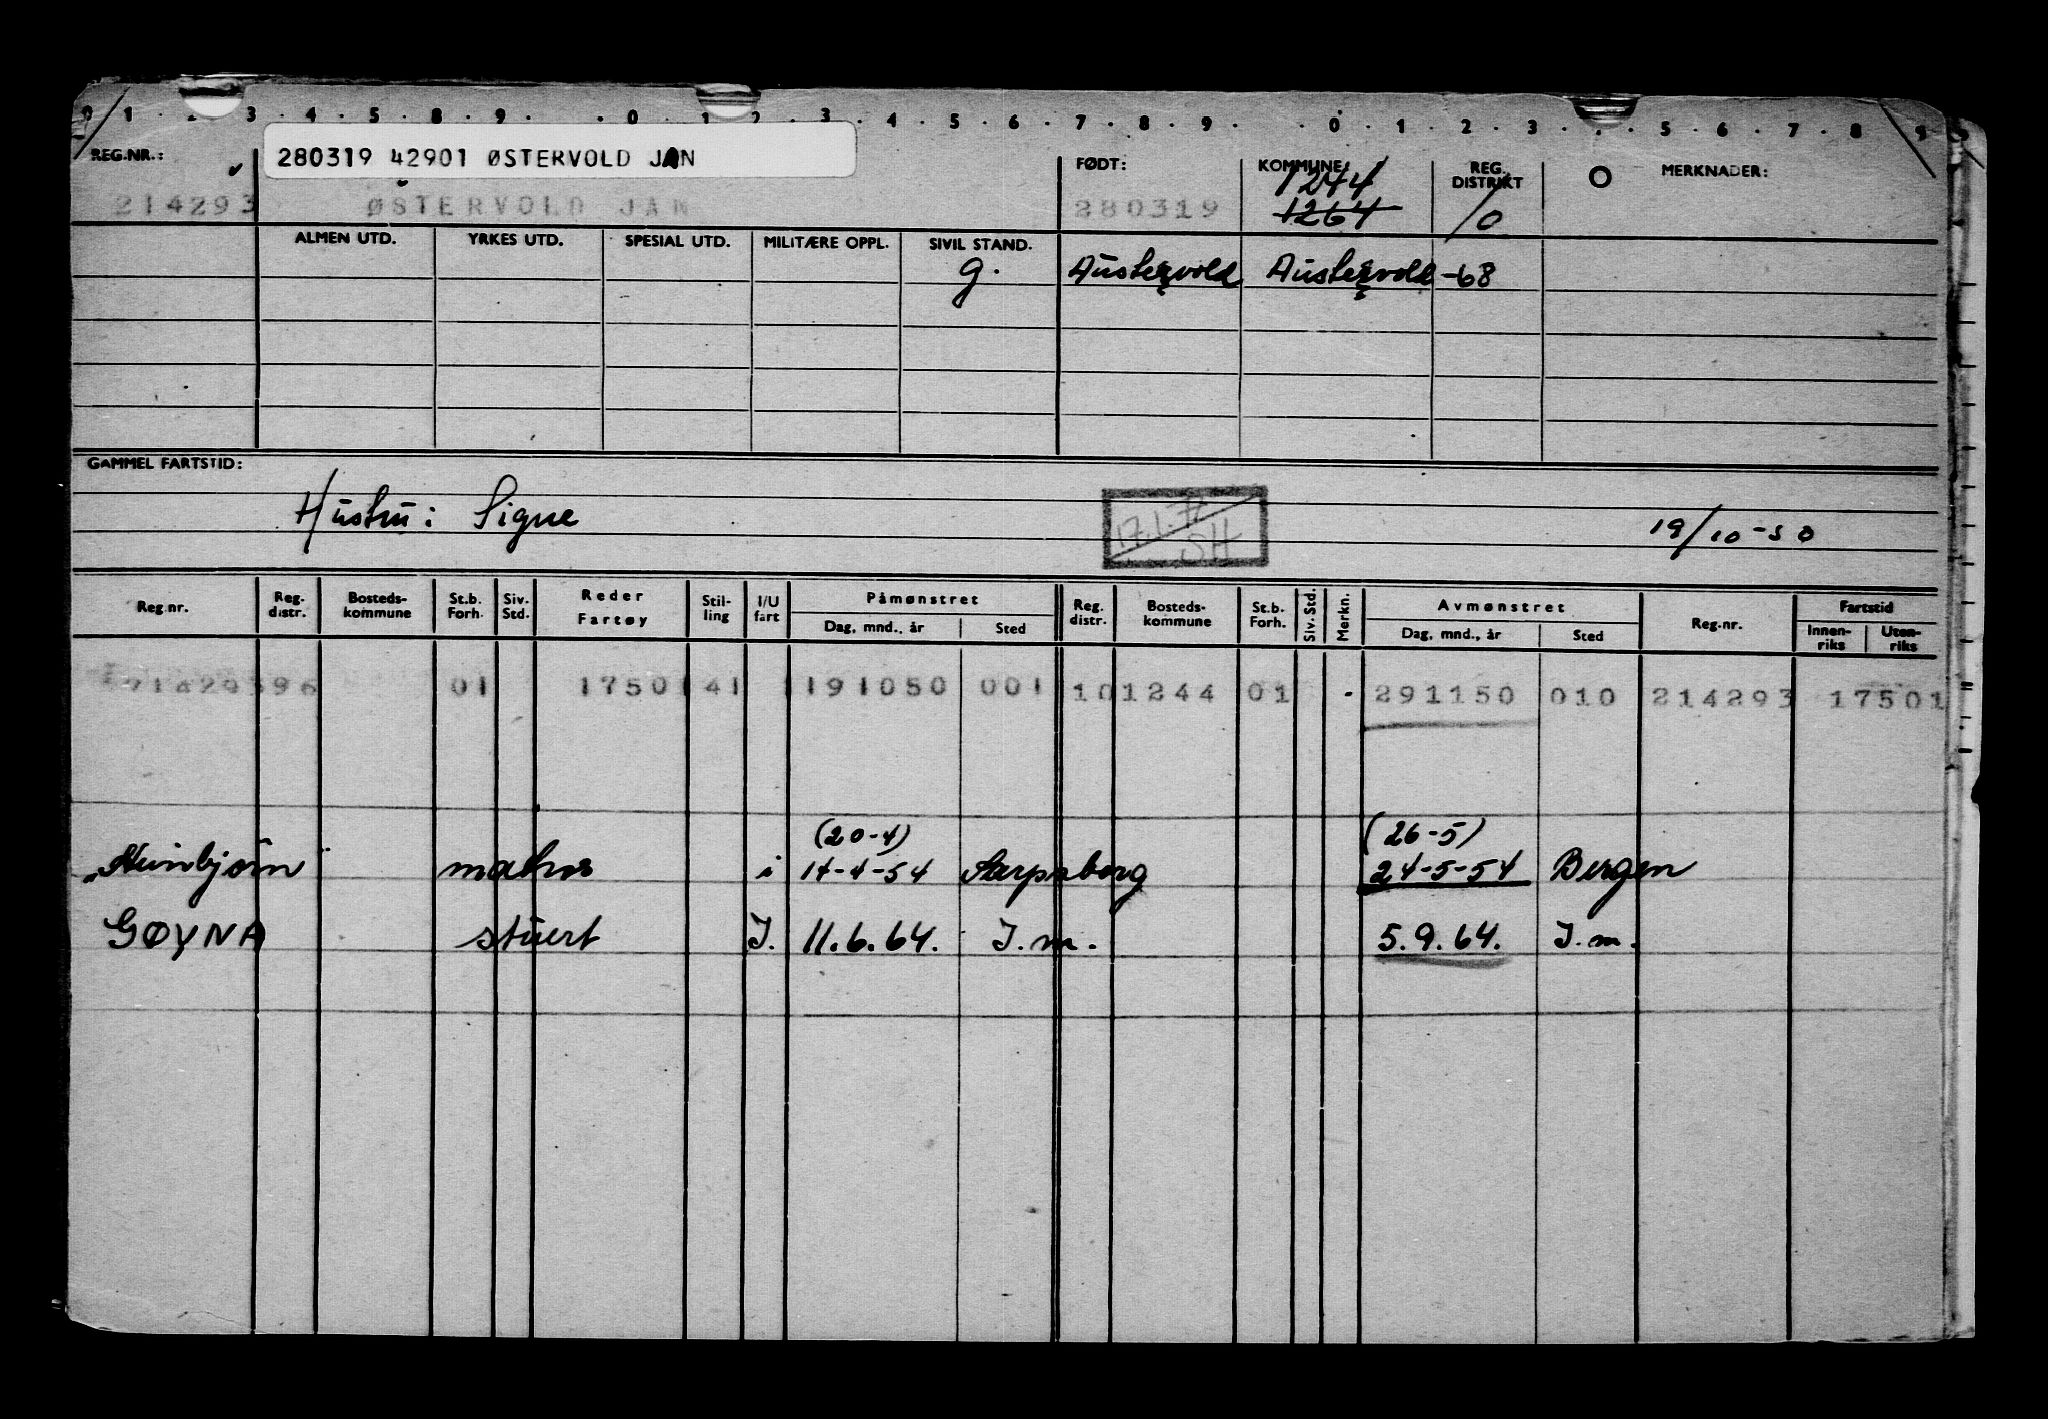 0 1 . 2 . 3 . 4 . 5 . 8 . 9 . . 0 . 1 . 2 . 3 . 4 . 5 . 6 . 7 . 8 . 9 . . 0 . 1 . 2 . 3 . . 5 . 6 . 7 . 8 . 9
280319 42901 ØSTERVOLD JAN
REG.NR.: FØDT: KOMMUNE: REG. DISTRIKT O MERKNADER:
1244
214293 ØSTERVOLD JAN 280319 1264 10
ALMEN UTD. YRKES UTD. SPESIAL UTD. MILITÆRE OPPL. SIVIL STAND.
g. Austervold Austervold -68
GAMMEL FARTSTID:
Hustru: Signe
17.1.72
SH
19/10-50
Reg.nr. Reg. distr. Bosteds-kommune St.b. Forh. Siv. Std. Reder Fartøy Stil-ling I/U fart Påmønstret Reg. distr. Bosteds-kommune St.b. Forh. Siv. Std. Merkn. Avmønstret Reg.nr. Fartstid
Dag, mnd., år Sted Dag, mnd., år Sted Innen-riks Uten-riks
01 17501 41 191050 001 10 1244 01 291150 010 214293 17501
(20-4) (26-5)
matros i 14-4-54 Sarpsborg 24-5-54 Bergen
GØYNA stuert I. 11.6.64. I.m. 5.9.64. I.m.